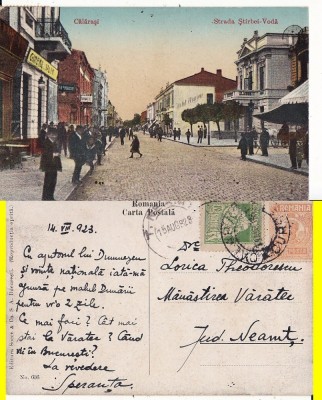 Călărași
Strada Știrbei-Vodă
Romania
Carta Postală
14.VIII.923.
Cu ajutorul lui Dumnezeu
și voința națională iată-mă
ajunsă pe malul Dunării
pentru vr'o 2 zile.
Ce mai faci? Cât mai
stai la Văratec? Când
vii în București?
La revedere
Speranța
D-rei
Lorica Theodorescu
Mănăstirea Văratec
Jud. Neamț.
ROMANIA
15 AUG 923
No. 695